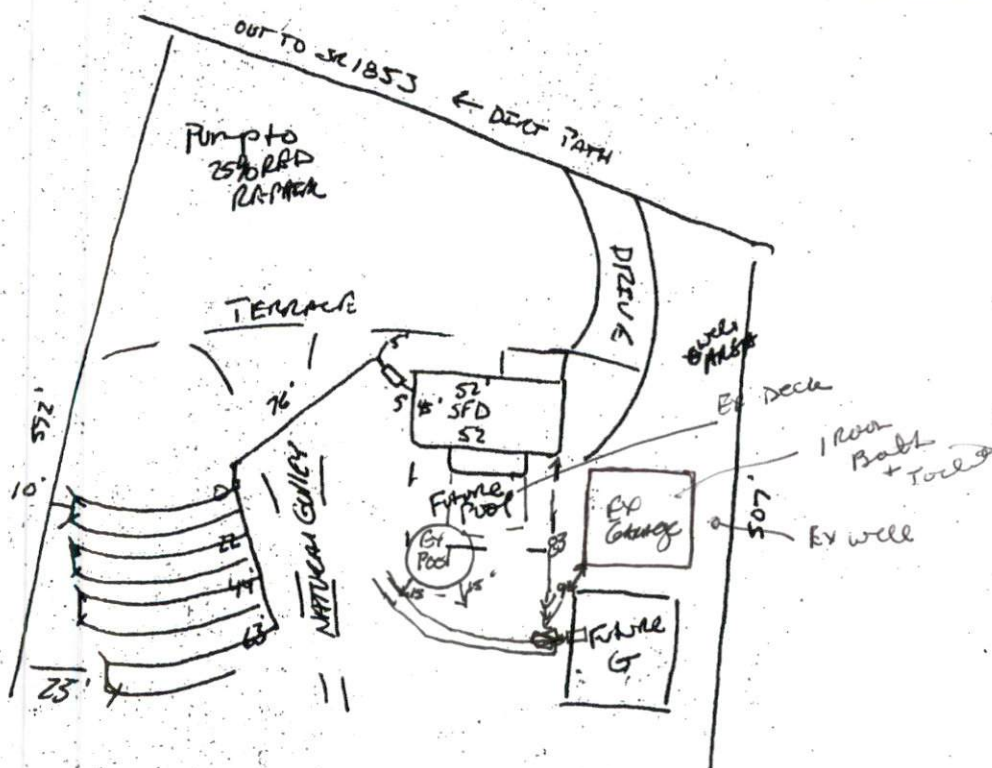 OUT TO SR 1853 ← DIRT PATH
Pump to
25% RED
REPAIR
DRIVE
TERRACE
well
AREA
5'
76'
5'
52'
SFD
52
Ex Deck
1 Room
Bath
+ Toilet
552'
507'
10'
NATURAL GULLY
Future
Pool
Ex
Garage
Ex well
Ex
Pool
22
83
44'
15
15'
63'
Future
G
23'